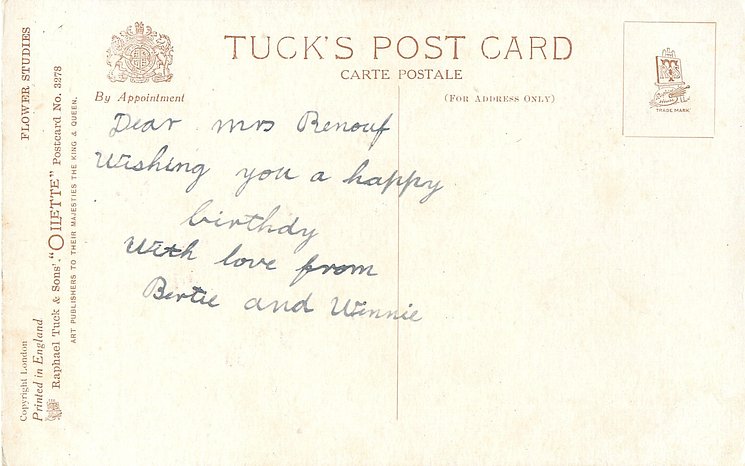 TUCK'S POST CARD
CARTE POSTALE
By Appointment
(FOR ADDRESS ONLY)
TRADE MARK
Dear Mrs Renouf
Wishing you a happy
birthdy
With love from
Bertie and Winnie
FLOWER STUDIES
Raphael Tuck & Sons' "OILETTE" Postcard No. 3278
ART PUBLISHERS TO THEIR MAJESTIES THE KING & QUEEN.
Copyright London
Printed in England